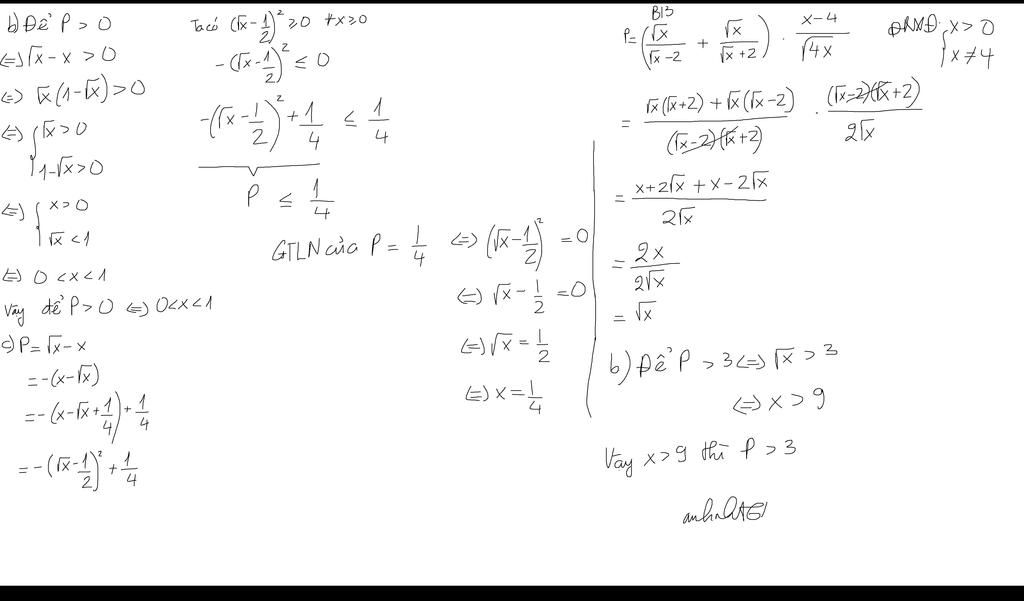 b) Để P > 0
⇔ √x - x > 0
⇔ √x(1-√x) > 0
⇔ { √x > 0
1-√x > 0
⇔ { x > 0
√x < 1
⇔ 0 < x < 1
Vây để P > 0 ⇔ 0 < x < 1
c) P = √x - x
= -(x-√x)
= -(x-√x+1/4)+1/4
= -(√x-1/2)²+1/4
Ta có (√x-1/2)² ≥ 0 ∀x ≥ 0
-(√x-1/2)² ≤ 0
-(√x-1/2)²+1/4 ≤ 1/4
P ≤ 1/4
GTLN của P = 1/4 ⇔ (√x-1/2)² = 0
⇔ √x - 1/2 = 0
⇔ √x = 1/2
⇔ x = 1/4
B13
P = (√x/(√x-2) + √x/(√x+2)) · (x-4)/√4x ĐKXĐ: { x > 0
x ≠ 4
= (√x(√x+2)+√x(√x-2))/((√x-2)(√x+2)) · ((√x-2)(√x+2))/(2√x)
= (x+2√x+x-2√x)/(2√x)
= 2x/(2√x)
= √x
b) Để P > 3 ⇔ √x > 3
⇔ x > 9
Vay x > 9 thì P > 3